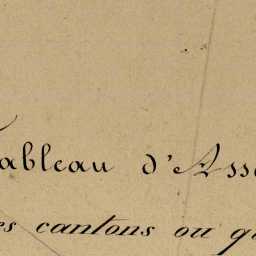 Tableau d'Ass
es cantons ou qu